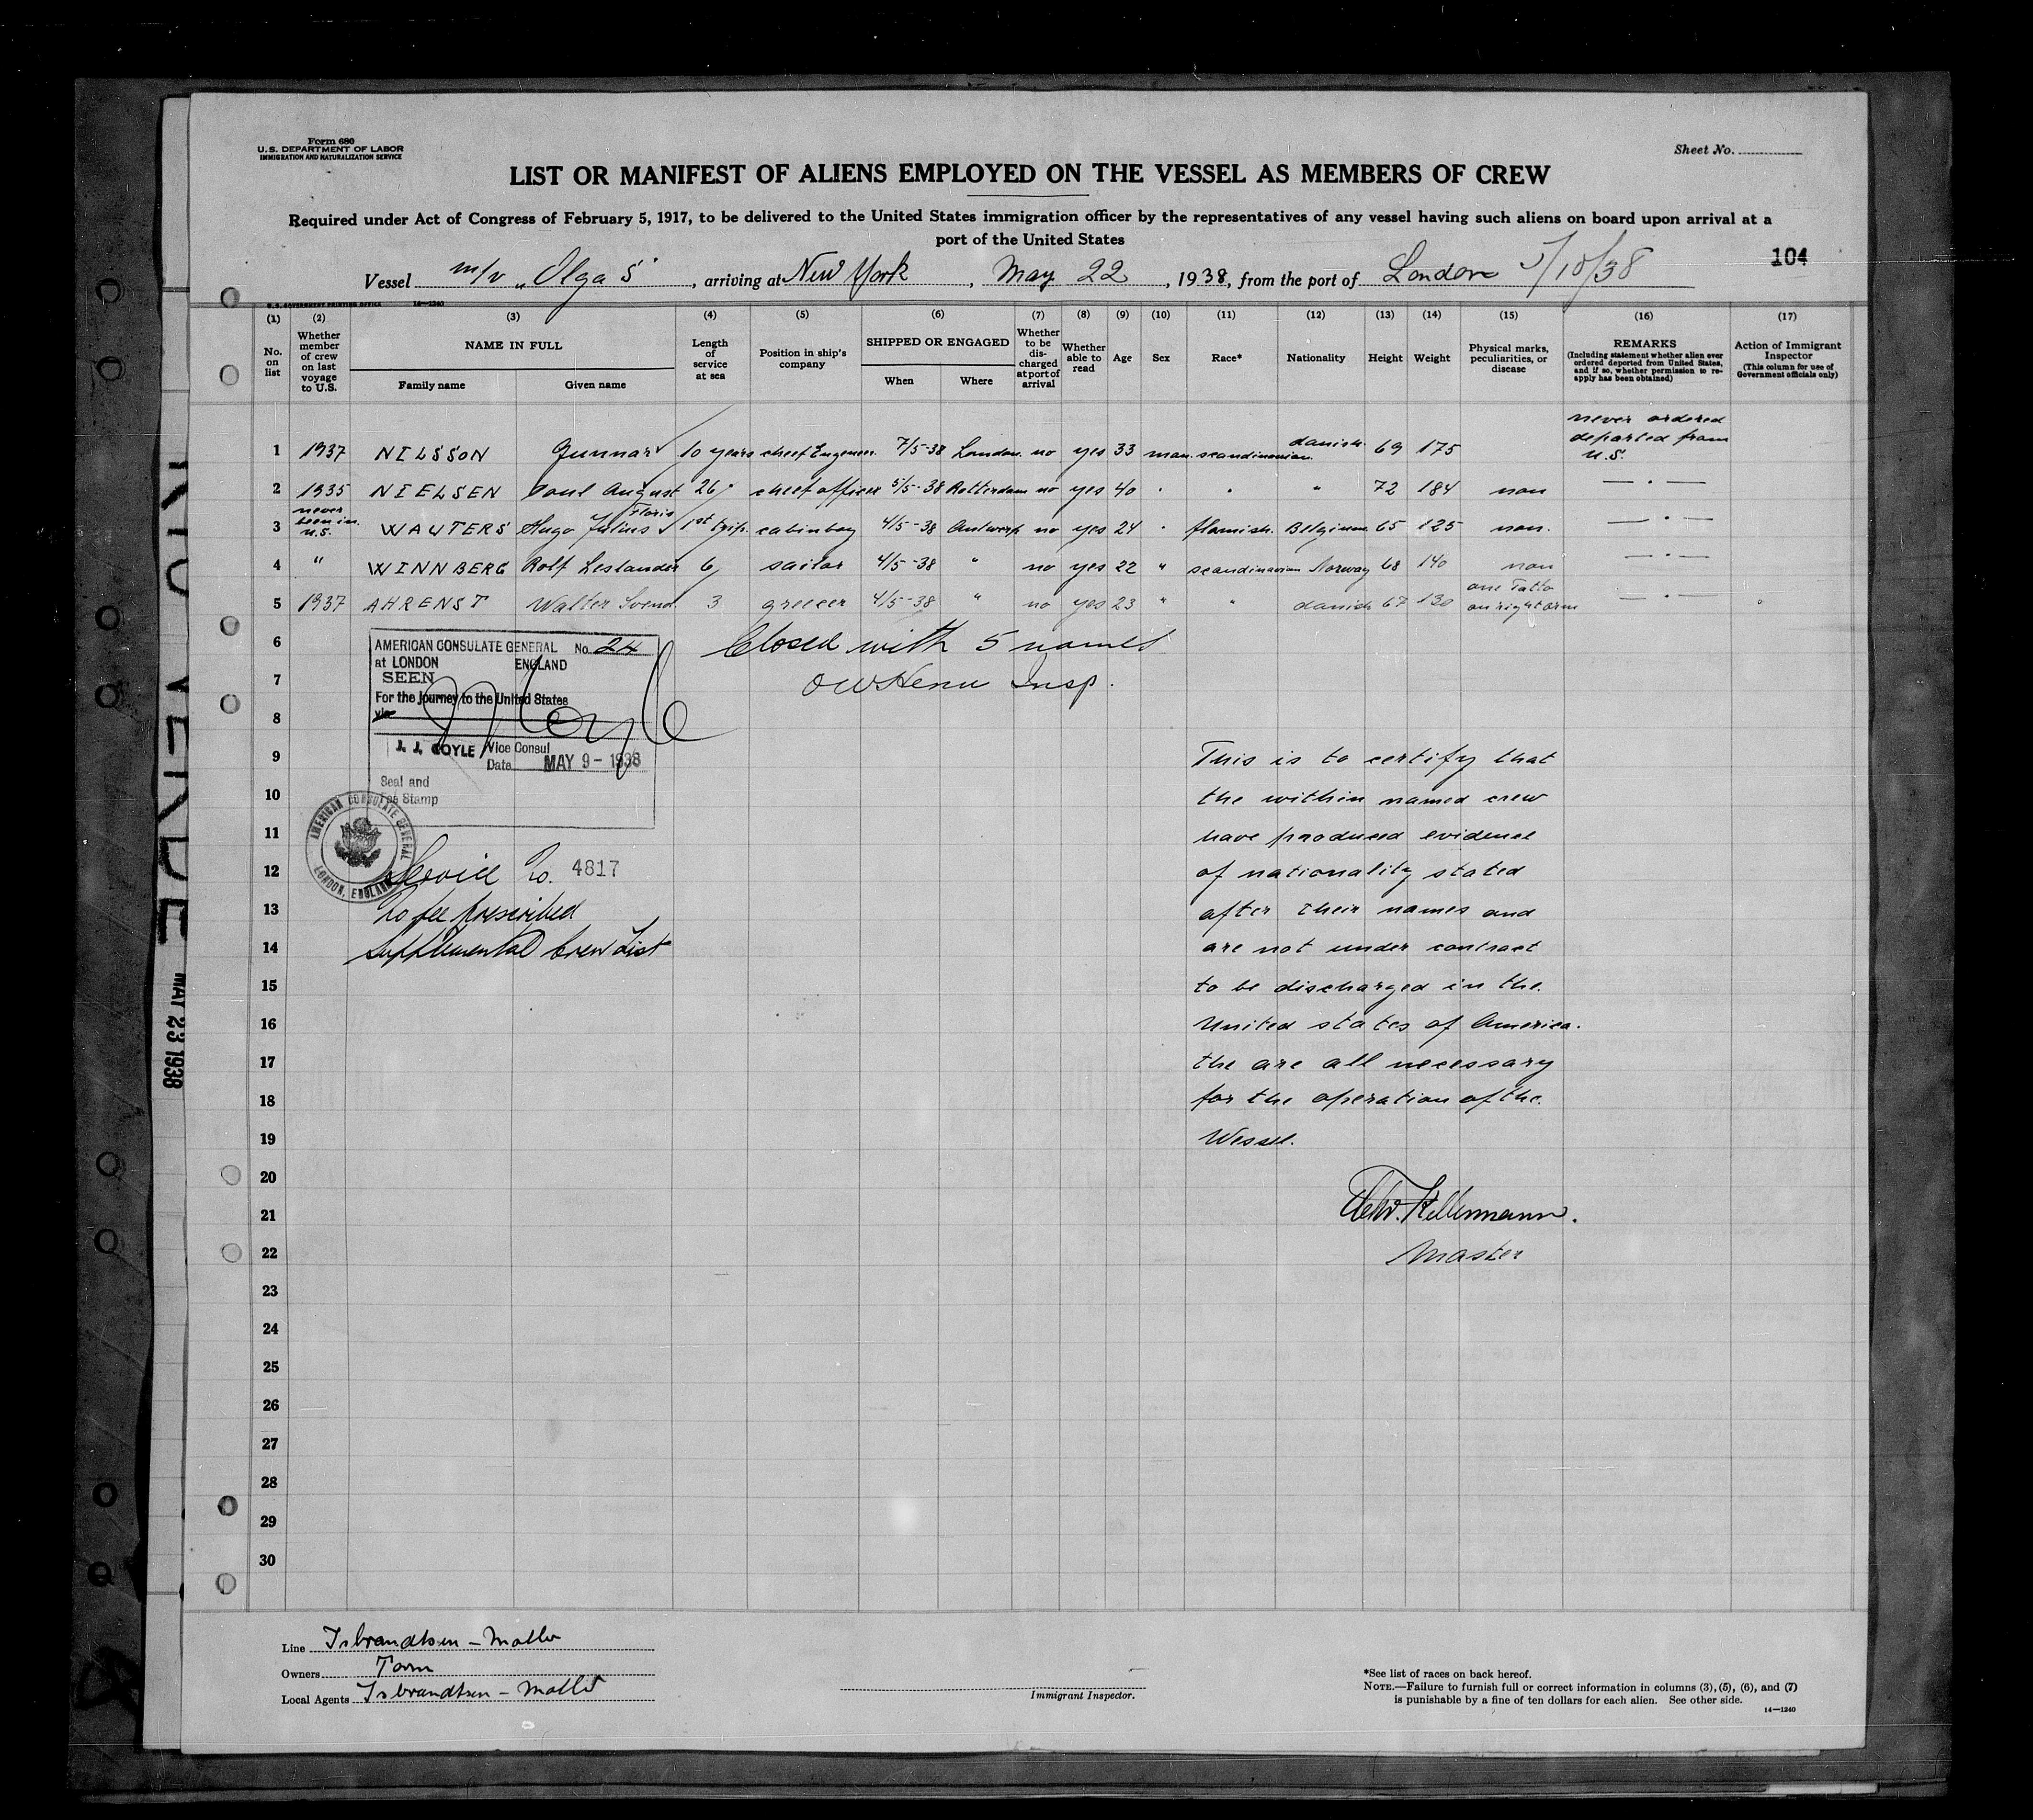 Form 680
U.S. DEPARTMENT OF LABOR
IMMIGRATION AND NATURALIZATION SERVICE
Sheet No.
LIST OR MANIFEST OF ALIENS EMPLOYED ON THE VESSEL AS MEMBERS OF CREW
Required under Act of Congress of February 5, 1917, to be delivered to the United States immigration officer by the representatives of any vessel having such aliens on board upon arrival at a
port of the United States
104
Vessel m/v "Olga S", arriving at New York, May 22, 1938, from the port of London 5/10/38
U.S. GOVERNMENT PRINTING OFFICE 14—1240
(1) (2) (3) (4) (5) (6) (7) (8) (9) (10) (11) (12) (13) (14) (15) (16) (17)
No. on list
Whether member of crew on last voyage to U.S.
NAME IN FULL
Family name Given name
Length of service at sea
Position in ship's company
SHIPPED OR ENGAGED
When Where
Whether to be discharged at port of arrival
Whether able to read
Age
Sex
Race*
Nationality
Height
Weight
Physical marks, peculiarities, or disease
REMARKS
(Including statement whether alien ever ordered deported from United States, and if so, whether permission to re-apply has been obtained)
Action of Immigrant Inspector
(This column for use of Government officials only)
1 1937 NILSSON Gunnar 10 years cheef Engeneer. 7/5-38 London. no yes 33 man. scandinavian. danish. 69 175 never ordered deported from U.S.
2 1935 NIELSEN Poul August 26 " cheef officer 5/5-38 Rotterdam no yes 40 " " " 72 184 non — " —
3 never been in U.S. WAUTERS Hugo Julius Floris 1st trip. cabinboy 4/5-38 Antwerp no yes 24 " flamish. Belgium. 65 125 non. — " —
4 " WINNBERG Rolf Leslander 6 sailor 4/5-38 " no yes 22 " scandinavian Norway 68 140 non — " —
5 1937 AHRENST Walter Svend. 3 greecer 4/5-38 " no yes 23 " " danish 67 130 one Tatto on right arm — " —
6 Closed with 5 names
7 Insp.
8
9
10
11
12
13
14
15
16
17
18
19
20
21
22
23
24
25
26
27
28
29
30
AMERICAN CONSULATE GENERAL No. 24
at LONDON ENGLAND
SEEN
For the journey to the United States
via
J. J. COYLE Vice Consul
Date MAY 9 - 1938
Seal and
Fee Stamp
AMERICAN CONSULATE GENERAL
LONDON, ENGLAND
Service No. 4817
No fee prescribed
Supplemental Crew List
This is to certify that
the within named crew
have produced evidence
of nationality stated
after their names and
are not under contract
to be discharged in the.
United states of America.
the are all necessary
for the operation of the.
Wessel.
Kellermann.
Master
MAY 23 1938
Line Isbrandtsen - Moller
Owners Torm
Local Agents Isbrandtsen - Moller
Immigrant Inspector.
*See list of races on back hereof.
NOTE.—Failure to furnish full or correct information in columns (3), (5), (6), and (7)
is punishable by a fine of ten dollars for each alien. See other side.
14—1240